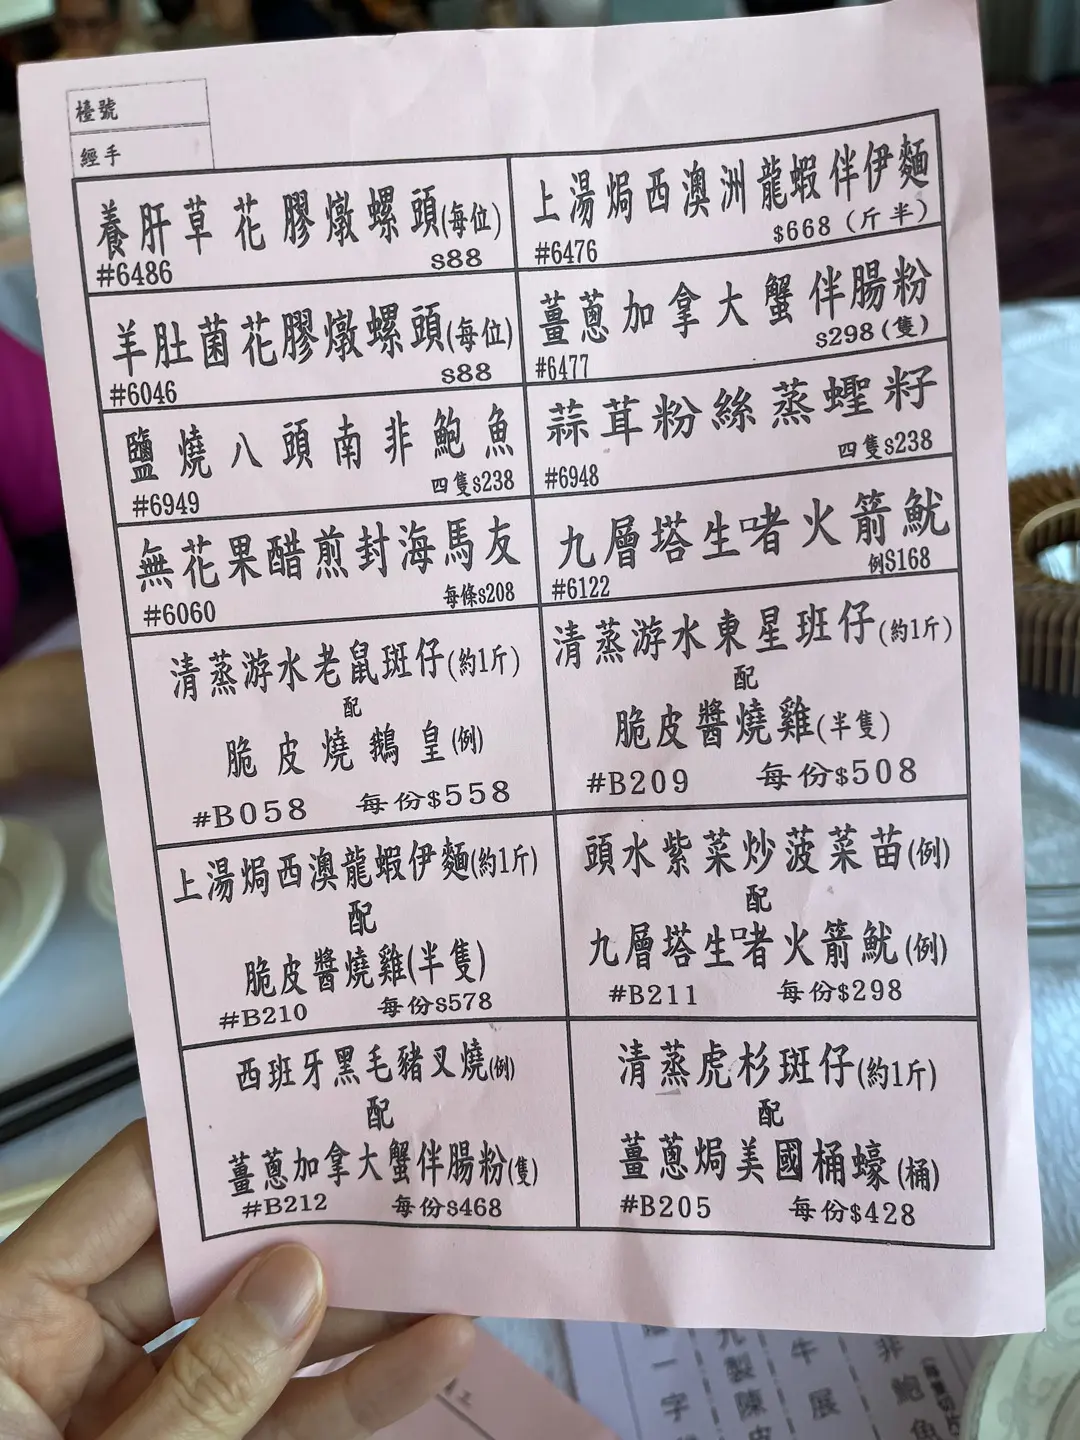 檯號
經手
養肝草花膠燉螺頭(每位)
#6486 $88
上湯焗西澳洲龍蝦伴伊麵
#6476 $668（斤半）
羊肚菌花膠燉螺頭(每位)
#6046 $88
薑蔥加拿大蟹伴腸粉
#6477 $298(隻)
鹽燒八頭南非鮑魚
#6949 四隻$238
蒜茸粉絲蒸蟶籽
#6948 四隻$238
無花果醋煎封海馬友
#6060 每條$208
九層塔生啫火箭魷
#6122 例$168
清蒸游水老鼠斑仔(約1斤)
配
脆皮燒鵝皇(例)
#B058 每份$558
清蒸游水東星班仔(約1斤)
配
脆皮醬燒雞(半隻)
#B209 每份$508
上湯焗西澳龍蝦伊麵(約1斤)
配
脆皮醬燒雞(半隻)
#B210 每份$578
頭水紫菜炒菠菜苗(例)
配
九層塔生啫火箭魷(例)
#B211 每份$298
西班牙黑毛豬叉燒(例)
配
薑蔥加拿大蟹伴腸粉(隻)
#B212 每份$468
清蒸虎杉斑仔(約1斤)
配
薑蔥焗美國桶蠔(桶)
#B205 每份$428
一字
九製陳皮
牛展
非鮑魚